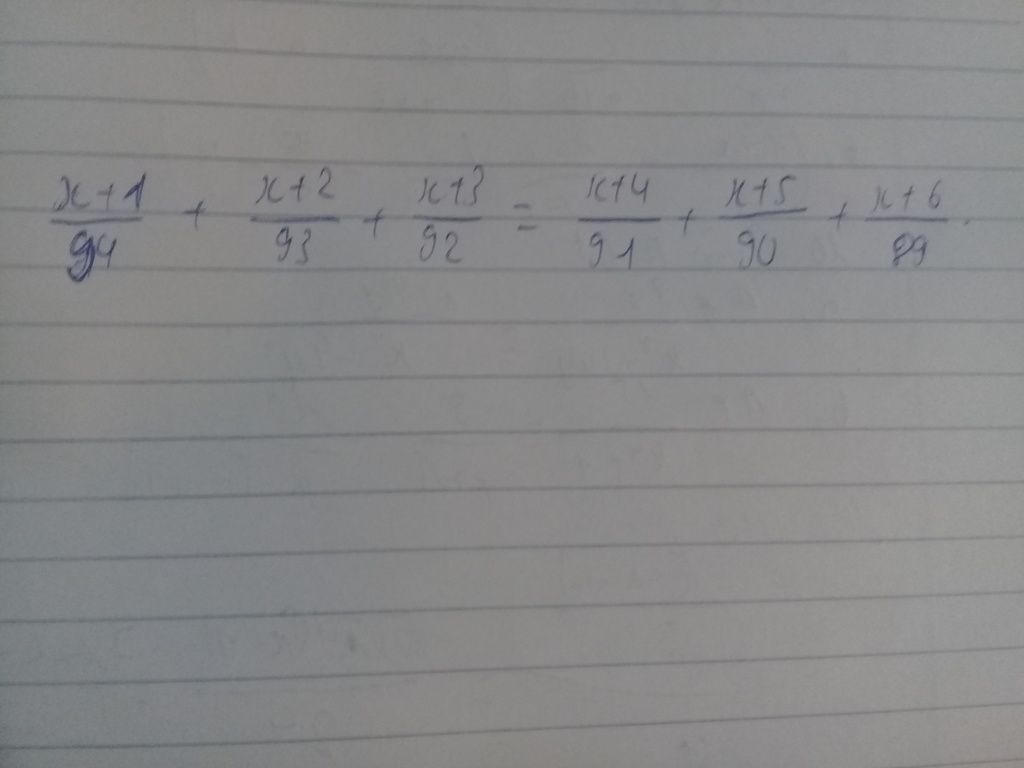 x+1/94 + x+2/93 + x+3/92 = x+4/91 + x+5/90 + x+6/89.